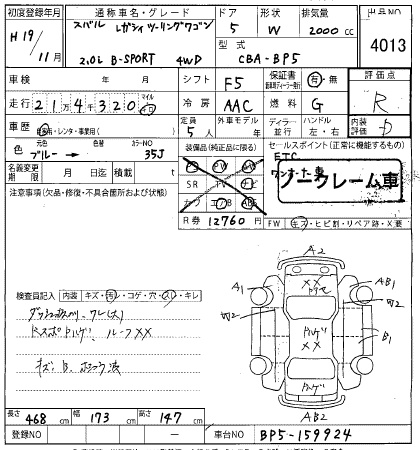 初度登録年月 通称車名・グレード ドア 形状 排気量 出品NO
H19/11月 スバル レガシィ ツーリングワゴン 5 W 2000 cc 4013
2.0L B-SPORT 4WD 型式 CBA-BP5
車検 年 月 シフト F5 保証書 有・無 評価点
走行 21万4千320 マイル km 冷房 AAC 燃料 G R
車歴 自家用・レンタ・事業用 定員 5人 外車モデル 年 ディーラー・並行 ハンドル 左・右 内装評価 D
色 元色 ブルー → 色替 カラーNO 35J 装備品(純正品に限る) セールスポイント(正常に機能するもの)
ETC
ワンオーナー車
ノークレーム車
名義変更期限 月 日迄 積載 t PS PW SR TV ナビ カワ エアB ABS
注意事項(欠品・修復・不具合箇所および状態)
R券 12760 円 FW キズ・ヒビ割・リペア跡・X要
検査員記入 内装 キズ・汚レ・コゲ・穴・スレ・キレ
ルーフXX
キズ、B、ホコウ波
A2
A1 XX AB1
W2 W2
XX B1
AB2
長さ 468 cm 幅 173 cm 高さ 147 cm
登録NO 車台NO BP5-159924